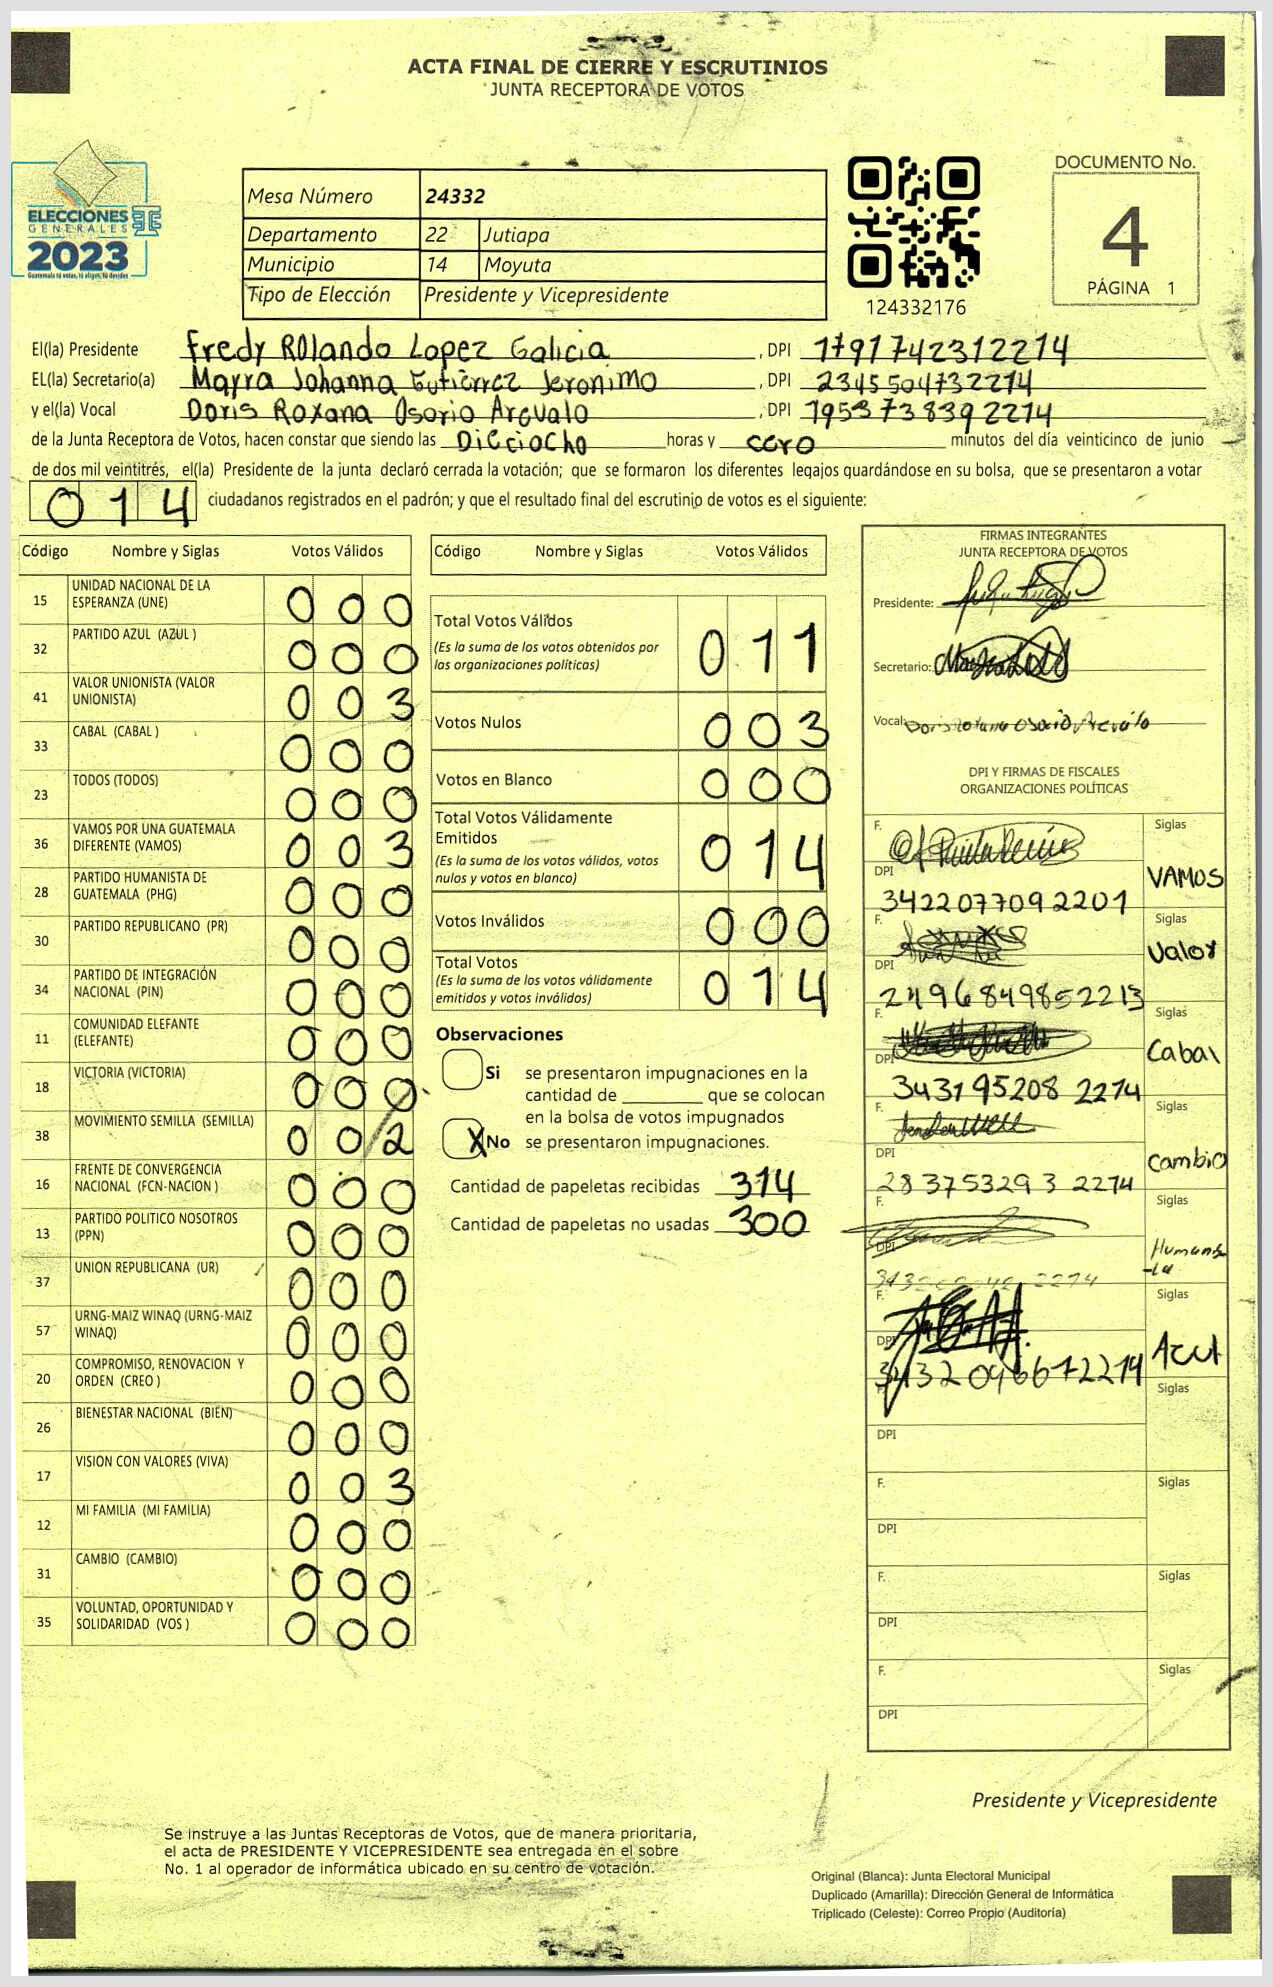 ACTA FINAL DE CIERRE Y ESCRUTINIOS
JUNTA RECEPTORA DE VOTOS
ELECCIONES
GENERALES
2023
Guatemala tú votas, tú eliges, tú decides
Mesa Número 24332
Departamento 22 Jutiapa
Municipio 14 Moyuta
Tipo de Elección Presidente y Vicepresidente
124332176
DOCUMENTO No.
4
PÁGINA 1
El(la) Presidente Fredy ROlando Lopez Galicia, DPI 1791742312214
EL(la) Secretario(a) Mayra Johanna Gutiérrez Jeronimo, DPI 2345504732214
y el(la) Vocal Doris Roxana Osorio Arevalo, DPI 1953738392214
de la Junta Receptora de Votos, hacen constar que siendo las Dieciocho horas y cero minutos del día veinticinco de junio
de dos mil veintitrés, el(la) Presidente de la junta declaró cerrada la votación; que se formaron los diferentes legajos guardándose en su bolsa, que se presentaron a votar
014 ciudadanos registrados en el padrón; y que el resultado final del escrutinio de votos es el siguiente:
Código Nombre y Siglas Votos Válidos
15 UNIDAD NACIONAL DE LA ESPERANZA (UNE) 000
32 PARTIDO AZUL (AZUL ) 000
41 VALOR UNIONISTA (VALOR UNIONISTA) 003
33 CABAL (CABAL ) 000
23 TODOS (TODOS) 000
36 VAMOS POR UNA GUATEMALA DIFERENTE (VAMOS) 003
28 PARTIDO HUMANISTA DE GUATEMALA (PHG) 000
30 PARTIDO REPUBLICANO (PR) 000
34 PARTIDO DE INTEGRACIÓN NACIONAL (PIN) 000
11 COMUNIDAD ELEFANTE (ELEFANTE) 000
18 VICTORIA (VICTORIA) 000
38 MOVIMIENTO SEMILLA (SEMILLA) 002
16 FRENTE DE CONVERGENCIA NACIONAL (FCN-NACION ) 000
13 PARTIDO POLITICO NOSOTROS (PPN) 000
37 UNION REPUBLICANA (UR) 000
57 URNG-MAIZ WINAQ (URNG-MAIZ WINAQ) 000
20 COMPROMISO, RENOVACION Y ORDEN (CREO ) 000
26 BIENESTAR NACIONAL (BIEN) 000
17 VISION CON VALORES (VIVA) 003
12 MI FAMILIA (MI FAMILIA) 000
31 CAMBIO (CAMBIO) 000
35 VOLUNTAD, OPORTUNIDAD Y SOLIDARIDAD (VOS ) 000
Código Nombre y Siglas Votos Válidos
Total Votos Válidos 011
(Es la suma de los votos obtenidos por
las organizaciones políticas)
Votos Nulos 003
Votos en Blanco 000
Total Votos Válidamente
Emitidos 014
(Es la suma de los votos válidos, votos
nulos y votos en blanco)
Votos Inválidos 000
Total Votos 014
(Es la suma de los votos válidamente
emitidos y votos inválidos)
Observaciones
Si se presentaron impugnaciones en la
cantidad de ________ que se colocan
en la bolsa de votos impugnados
X No se presentaron impugnaciones.
Cantidad de papeletas recibidas 314
Cantidad de papeletas no usadas 300
FIRMAS INTEGRANTES
JUNTA RECEPTORA DE VOTOS
Presidente:
Secretario:
Vocal: Doris Roxana Osorio Arevalo
DPI Y FIRMAS DE FISCALES
ORGANIZACIONES POLÍTICAS
F. Siglas
DPI VAMOS
3422077092201
F. Siglas
DPI Valor
2496849852213
F. Siglas
DPI Cabal
343195208 2214
F. Siglas
DPI Cambio
283753293 2214
F. Siglas
DPI Humanis
-ta
2214
F. Siglas
DPI Azul
3432096672214
F. Siglas
DPI
F. Siglas
DPI
F. Siglas
DPI
F. Siglas
DPI
Presidente y Vicepresidente
Se instruye a las Juntas Receptoras de Votos, que de manera prioritaria,
el acta de PRESIDENTE Y VICEPRESIDENTE sea entregada en el sobre
No. 1 al operador de informática ubicado en su centro de votación.
Original (Blanca): Junta Electoral Municipal
Duplicado (Amarilla): Dirección General de Informática
Triplicado (Celeste): Correo Propio (Auditoría)